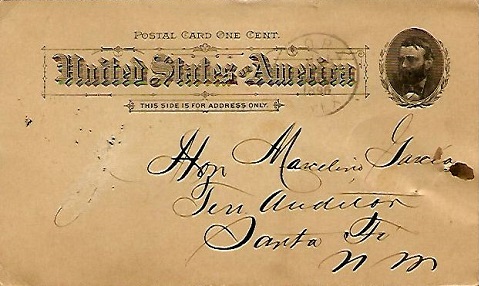 POSTAL CARD ONE CENT.
United States of America
THIS SIDE IS FOR ADDRESS ONLY.
Hon Marcelino Garcia
Ter. Auditor
Santa Fe
N M